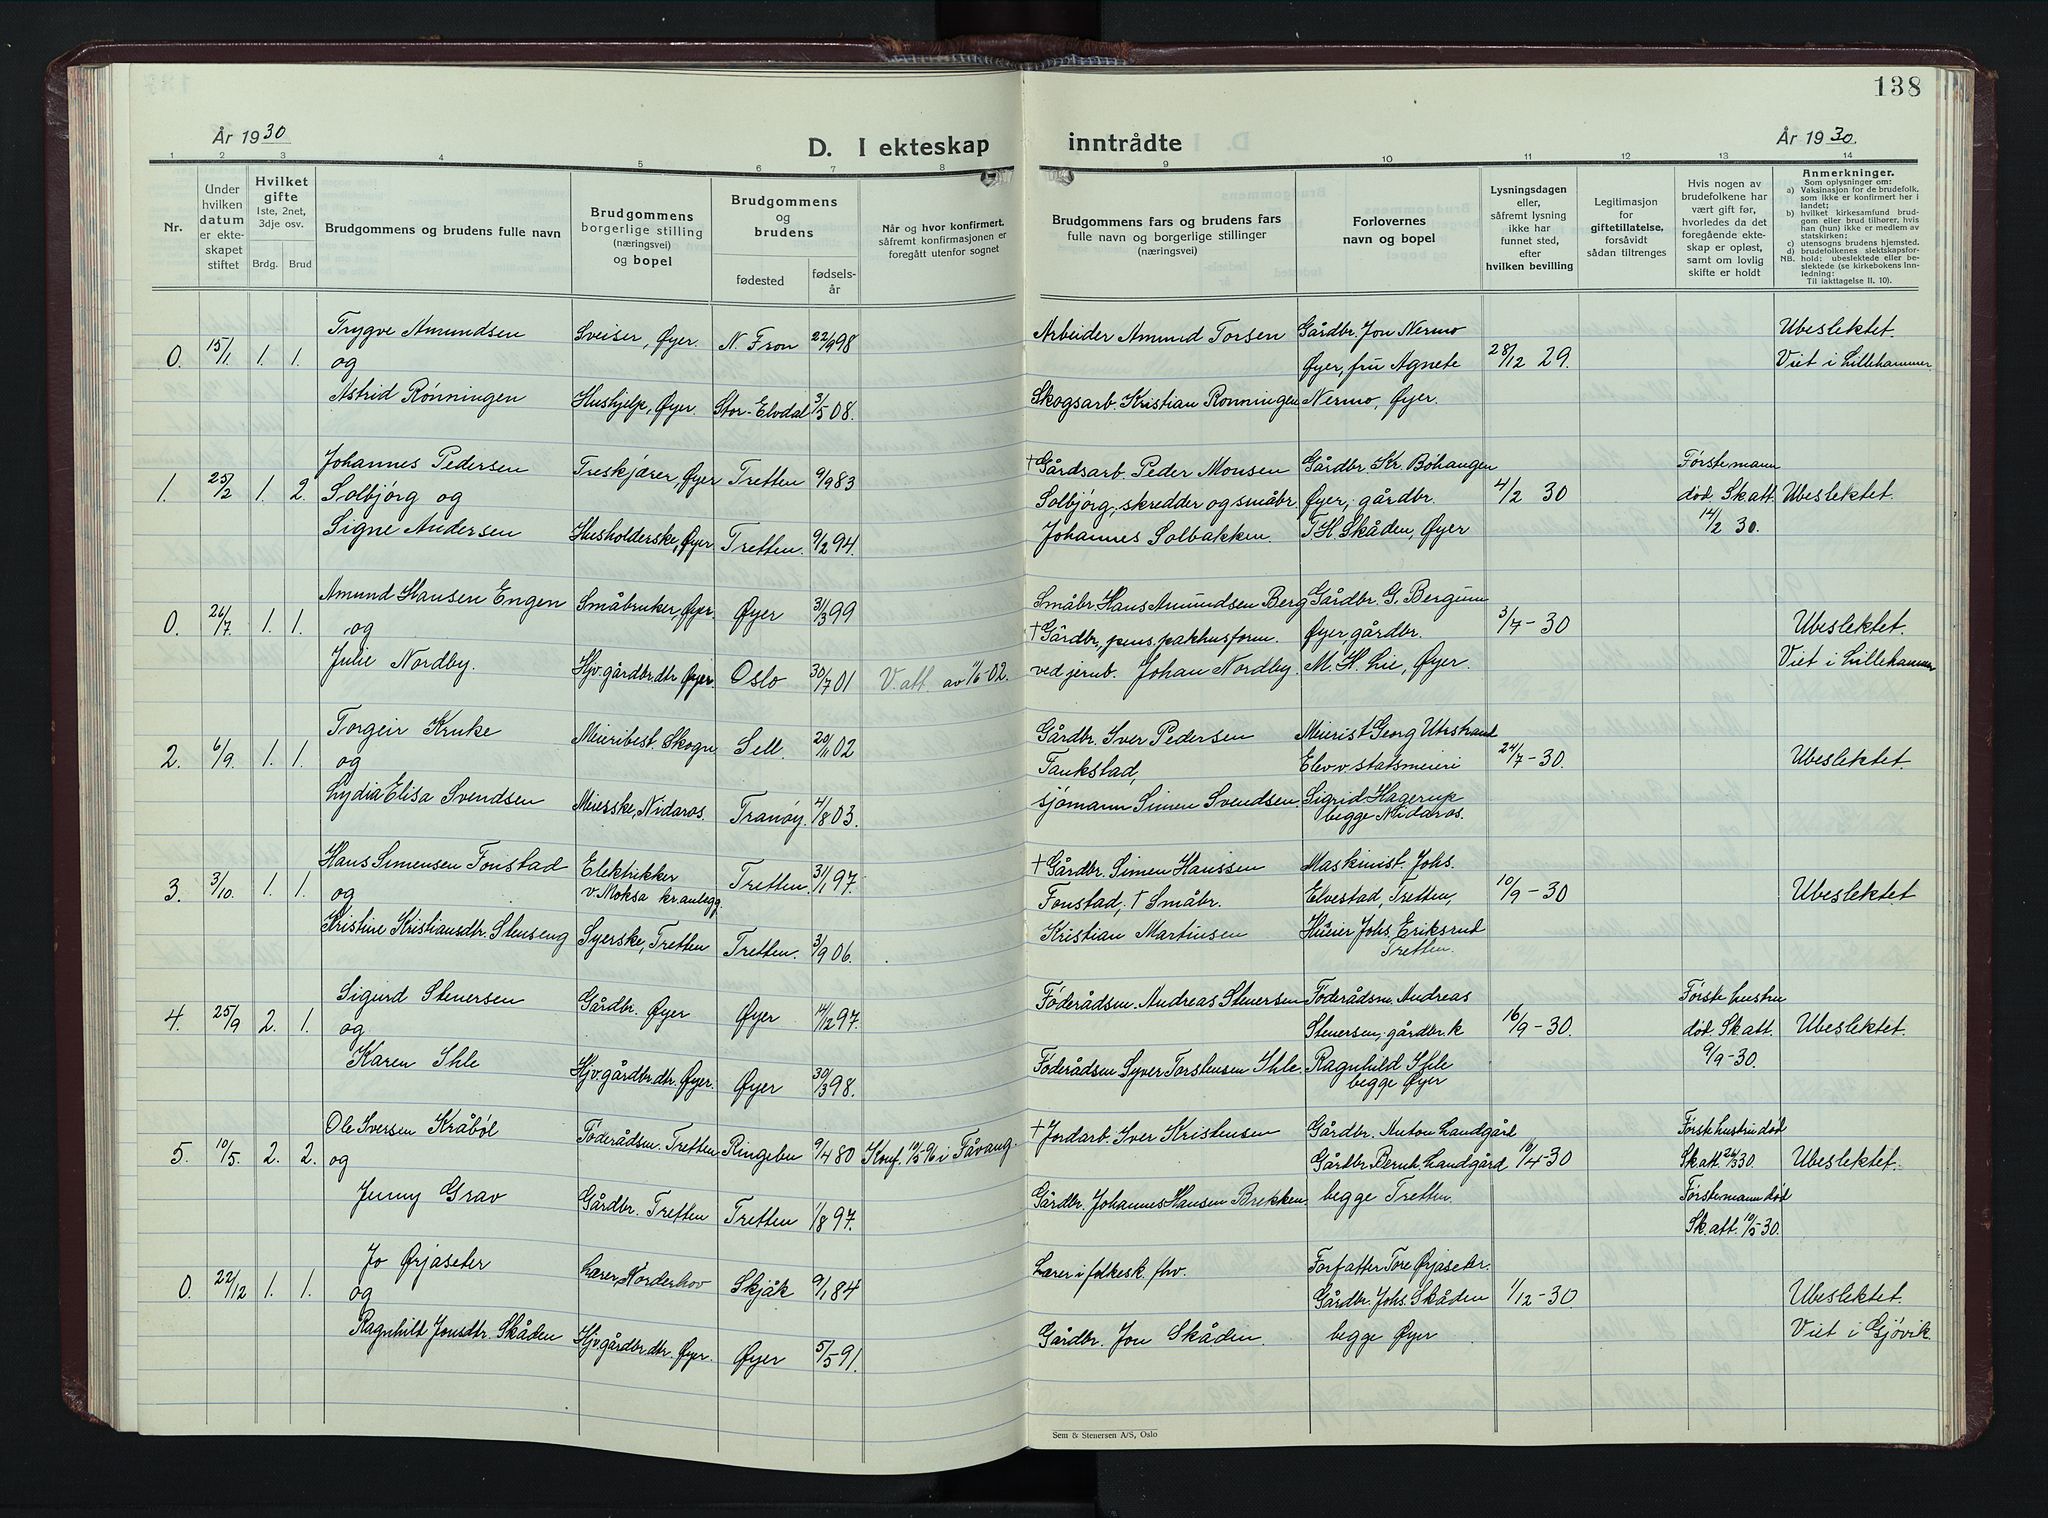 138
År 1930
D. I ekteskap inntrådte
År 1930.
1 2 3 4 5 6 7 8 9 10 11 12 13 14
Nr.
Under hvilken datum er ekteskapet stiftet
Hvilket gifte
1ste, 2net, 3dje osv.
Brdg. Brud
Brudgommens og brudens fulle navn
Brudgommens borgerlige stilling (næringsvei) og bopel
Brudgommens og brudens
fødested
fødselsår
Når og hvor konfirmert, såfremt konfirmasjonen er foregått utenfor sognet
Brudgommens fars og brudens fars fulle navn og borgerlige stillinger (næringsvei)
Forlovernes navn og bopel
Lysningsdagen eller, såfremt lysning ikke har funnet sted, efter hvilken bevilling
Legitimasjon for giftetillatelse, forsåvidt sådan tiltrenges
Hvis nogen av brudefolkene har vært gift før, hvorledes da det foregående ekteskap er opløst, samt om lovlig skifte er holdt
Anmerkninger.
Som oplysninger om:
a) Vaksinasjon for de brudefolk, som ikke er konfirmert her i landet;
b) hvilket kirkesamfund brudgom eller brud tilhører, hvis han (hun) ikke er medlem av statskirken;
c) utensogns brudens hjemsted.
d) brudefolkenes slektskapsforhold: ubeslektede eller beslektede (se kirkebokens Innledning:
NB. Til iakttagelse II. 10).
0. 15/1 1. 1. Trygve Amundsen Sveiser, Øyer N. Fron 22/9 98 Arbeider Amund Torsen Gårdbr. Jon Nermo Ubeslektet.
og Øyer, fru Agnete 28/12 29. Viet i Lillehammer
Astrid Rønningen Hushjelp, Øyer. Stor-Elvdal 3/5 08. Skogsarb. Kristian Rønningen Nermo, Øyer.
1. 25/2 1. 2. Johannes Pedersen Treskjærer, Øyer Tretten 9/9 83 † Gårdsarb. Peder Monsen Gårdbr. Kr. Bøhaugen Første mann
Solbjørg og Solbjørg, skredder og småbr. Øyer, gårdbr. 4/2 30 død. Sk.att. Ubeslektet.
Signe Andersen Husholderske, Øyer Tretten. 9/2 94. Johannes Solbakken. T. H. Skåden, Øyer 14/2 30.
0. 26/7. 1. 1. Amund Hansen Engen Småbruker, Øyer. Øyer 31/3 99 Småbr. Hans Amundsen Berg Gårdbr. G. Bergum 3/7 - 30 Ubeslektet.
og † Gårdbr., pens. pakhusform. Øyer, gårdbr.
Julie Nordby. Hjv. gårdbr.dtr Øyer. Oslo 30/7 01 V. att. av 1/6-02. ved jernb. Johan Nordby. M. H. Lie, Øyer. Viet i Lillehammer
2. 6/9. 1. 1. Torgeir Kruke Meieribest. Skogn Sell 20/11 02 Gårdbr. Iver Pedersen Meierist Georg Utistrand
og Taukstad, Elev v. statsmeieri 24/7-30. Ubeslektet.
Lydia Elisa Svendsen Meierske, Nidaros. Tranøy. 4/8 03. sjømann Simen Svendsen. Sigrid Hagerup
begge Nidaros.
3. 3/10. 1. 1. Hans Simensen Fonstad Elektrikker Tretten. 31/1 97. † Gårdbr. Simen Hanssen Maskinist. Johs.
og v. Moksa kr.anlegg. Fonstad, † Småbr. Elvestad, Tretten, 10/9 - 30 Ubeslektet
Kristine Kristiansdtr. Stenseng Syerske, Tretten Tretten. 3/9 06. Kristian Martinsen Huseier Johs. Eriksrud
Tretten.
4. 25/9 2. 1. Sigurd Stenersen Gårdbr. Øyer Øyer 14/12 97. Føderådsm. Andreas Stenersen Føderådsm. Andreas Første hustru
og Stenersen, gårdbr.k 16/9 - 30. død. Sk.att. Ubeslektet.
Karen Ihle Hjv. gårdbr.dtr. Øyer. Øyer 30/3 98. Føderådsm Syver Torstensen Ihle. Ragnhild Ihle 9/9-30.
begge Øyer
5. 10/5. 2. 2. Ole Iversen Kråbøl Føderådsm. Tretten Ringebu 9/4 80 Konf. 10/5-96 i Fåvang. † Jordarb. Iver Kristensen Gårdbr. Anton Landgård Første hustru død
og Gårdbr. Bernh. Landgård 10/4-30 Sk.att. 26/3 30. Ubeslektet.
Jenny Grav Gårdbr. Tretten Tretten 1/8 97. Gårdbr. Johannes Hansen Brekken. begge Tretten. Første mann død
Sk.att. 10/5-30.
0. 22/12 1. 1. Jo Ørjaseter Lærer, Norderhov Skjåk 9/1 84 Lærer i folkesk. fhv. Forfatter Tore Ørjaseter.
og Gårdbr. Johs. Skåden 1/12-30. Ubeslektet.
Ragnhild Jonsdtr. Skåden Hjv. gårdbr.dtr. Øyer. Øyer 5/5-91. Gårdbr. Jon Skåden. begge Øyer Viet i Gjøvik.
Sem & Stenersen A/S, Oslo